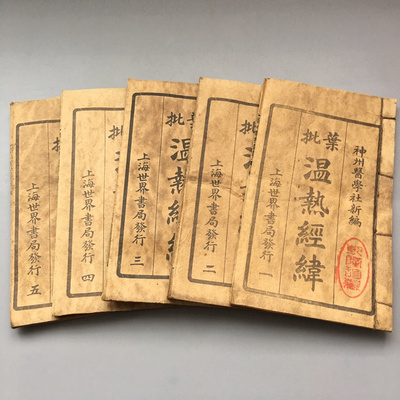 神州醫學社新編
葉批
温熱經緯
上海世界書局發行 一
批
上海世界書局發行 二
批
温熱經
上海世界書局發行 三
批
上海世界書局發行 四
上海世界書局發行 五